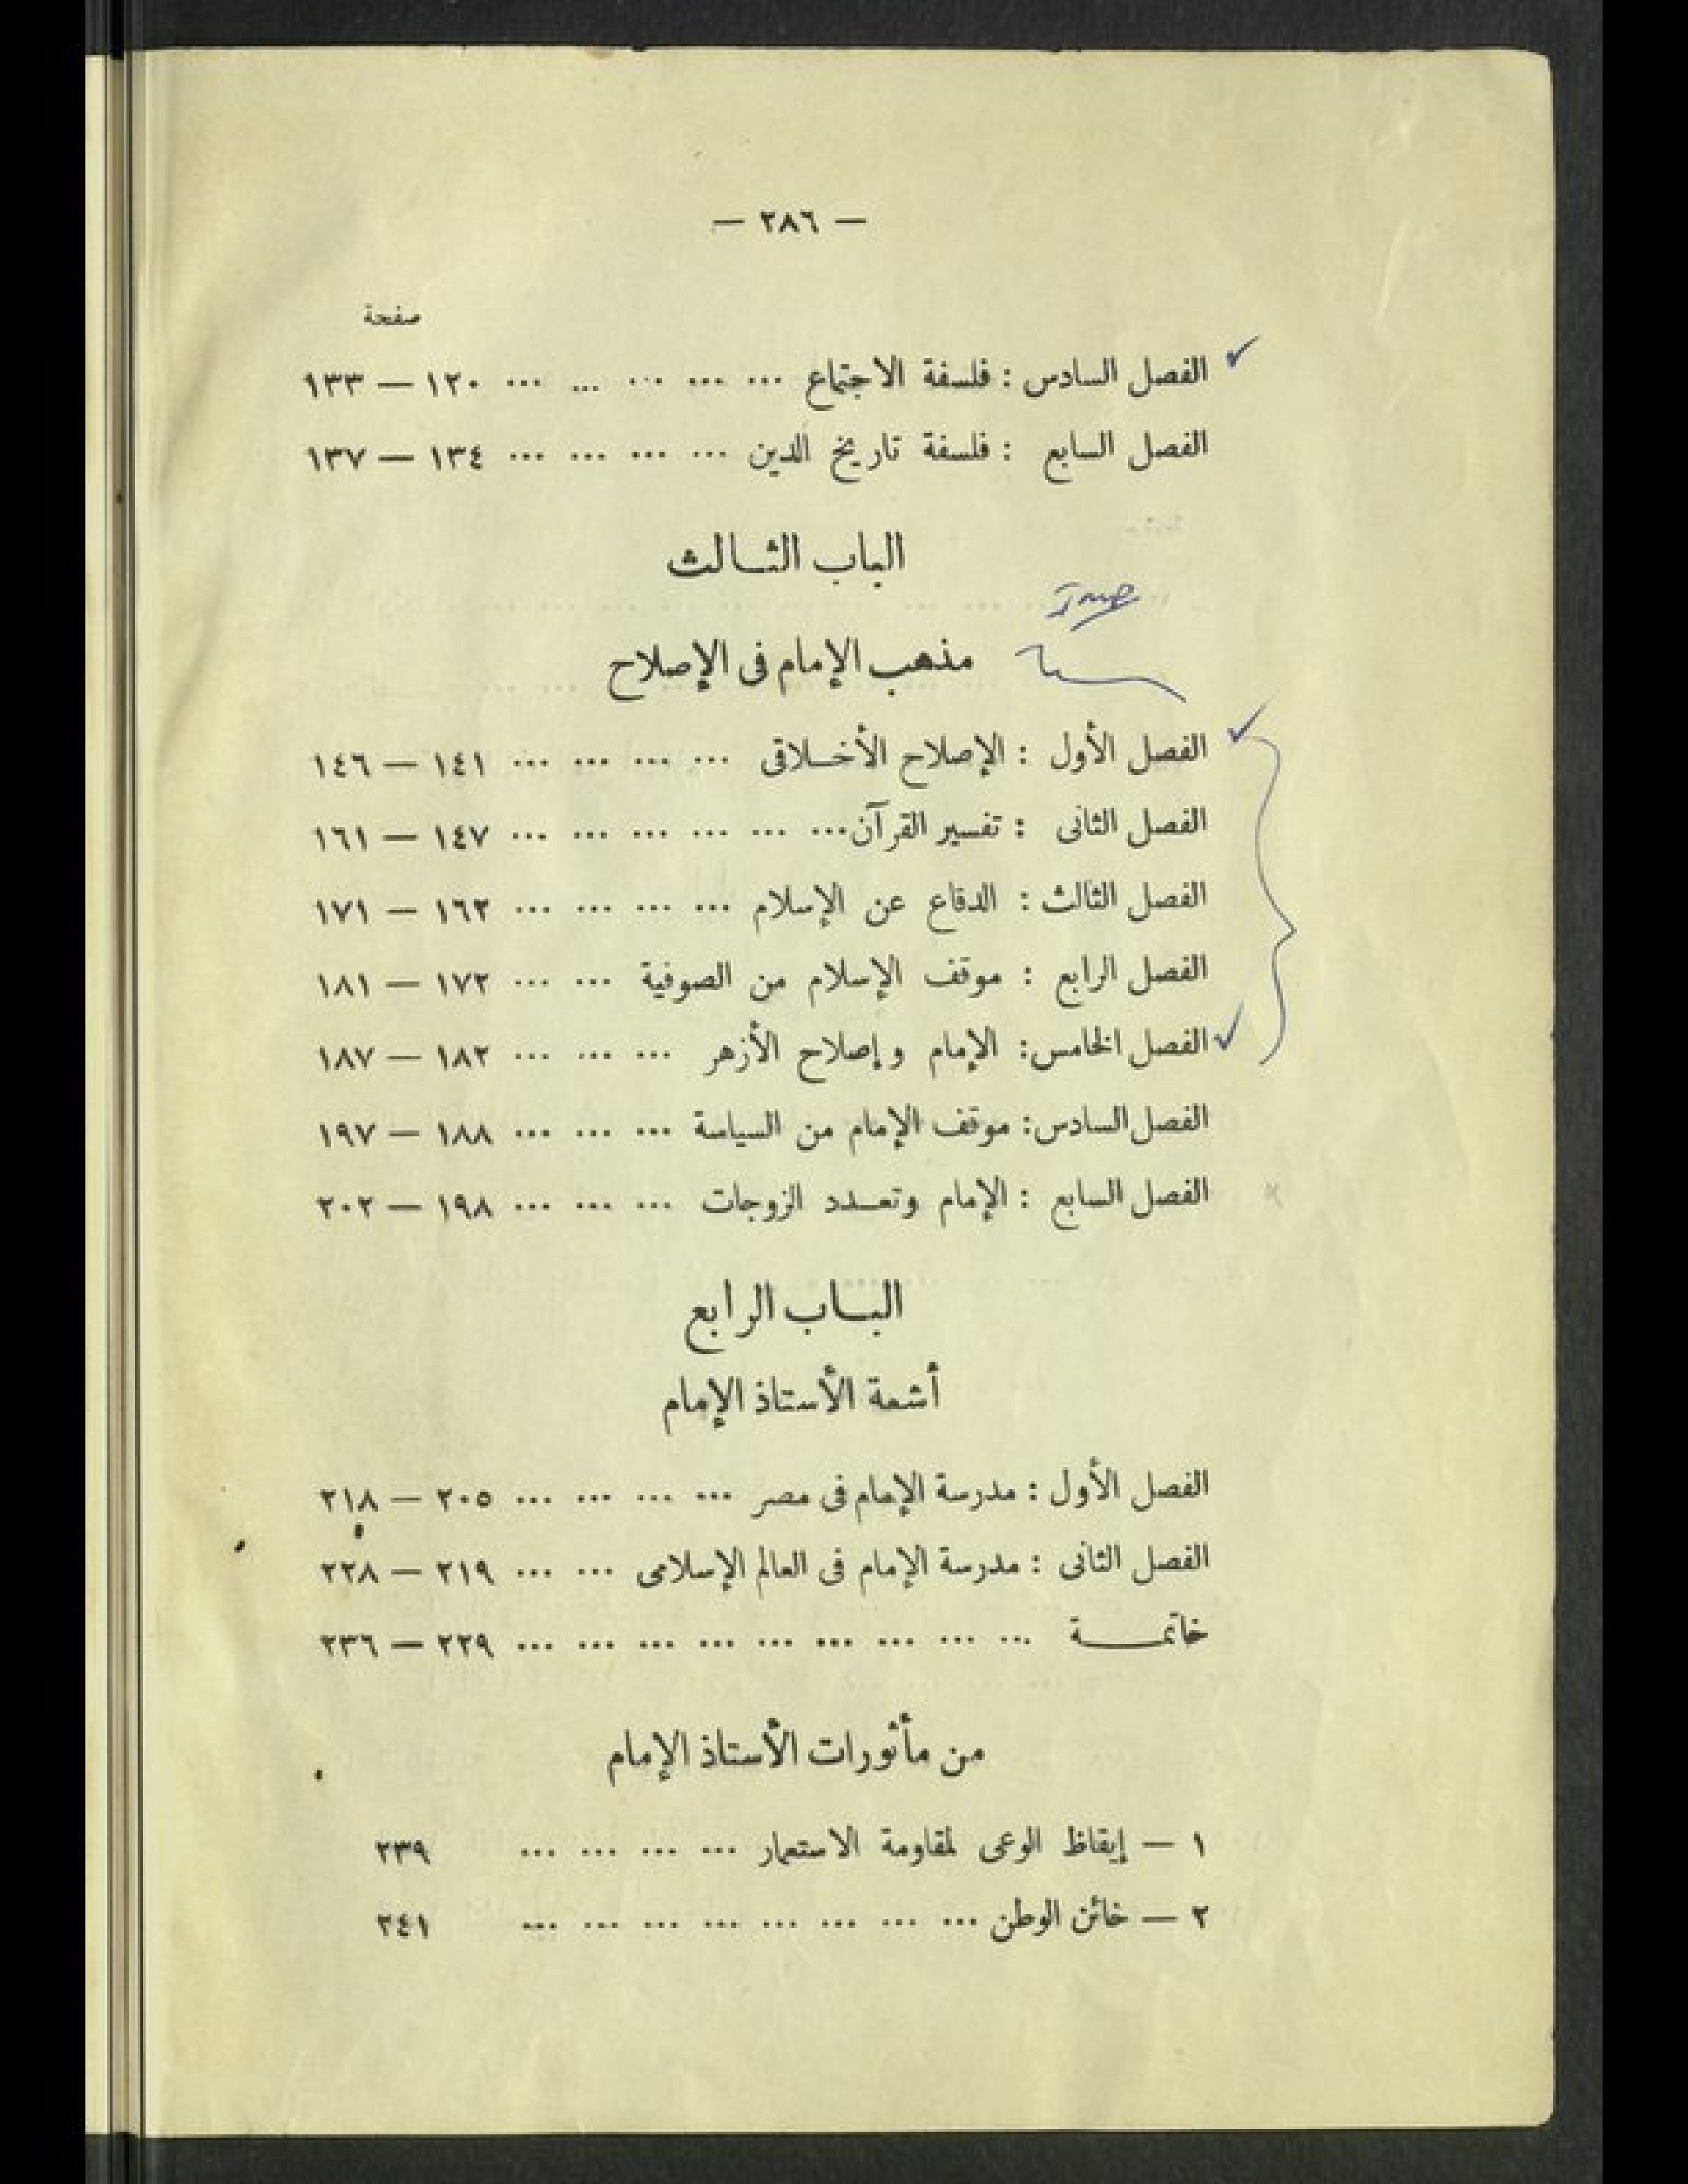 — ٢٨٦ —
صفحة
الفصل السادس : فلسفة الاجتماع ... ... ... ... ... ١٢٠ — ١٣٣
الفصل السابع : فلسفة تاريخ الدين ... ... ... ... ١٣٤ — ١٣٧
الباب الثالث
مذهب الإمام فى الإصلاح
الفصل الأول : الإصلاح الأخلاقى ... ... ... ... ١٤١ — ١٤٦
الفصل الثانى : تفسير القرآن ... ... ... ... ... ... ١٤٧ — ١٦١
الفصل الثالث : الدفاع عن الإسلام ... ... ... ... ١٦٢ — ١٧١
الفصل الرابع : موقف الإسلام من الصوفية ... ... ١٧٢ — ١٨١
الفصل الخامس : الإمام وإصلاح الأزهر ... ... ... ١٨٢ — ١٨٧
الفصل السادس : موقف الإمام من السياسة ... ... ... ١٨٨ — ١٩٧
الفصل السابع : الإمام وتعدد الزوجات ... ... ... ١٩٨ — ٢٠٢
الباب الرابع
أشعة الأستاذ الإمام
الفصل الأول : مدرسة الإمام فى مصر ... ... ... ... ٢٠٥ — ٢١٨
الفصل الثانى : مدرسة الإمام فى العالم الإسلامى ... ... ٢١٩ — ٢٢٨
خاتمة ... ... ... ... ... ... ... ... ... ٢٢٩ — ٢٣٦
من مأثورات الأستاذ الإمام
١ — إيقاظ الوعى لمقاومة الاستعمار ... ... ... ... ٢٣٩
٢ — خائن الوطن ... ... ... ... ... ... ... ... ٢٤١